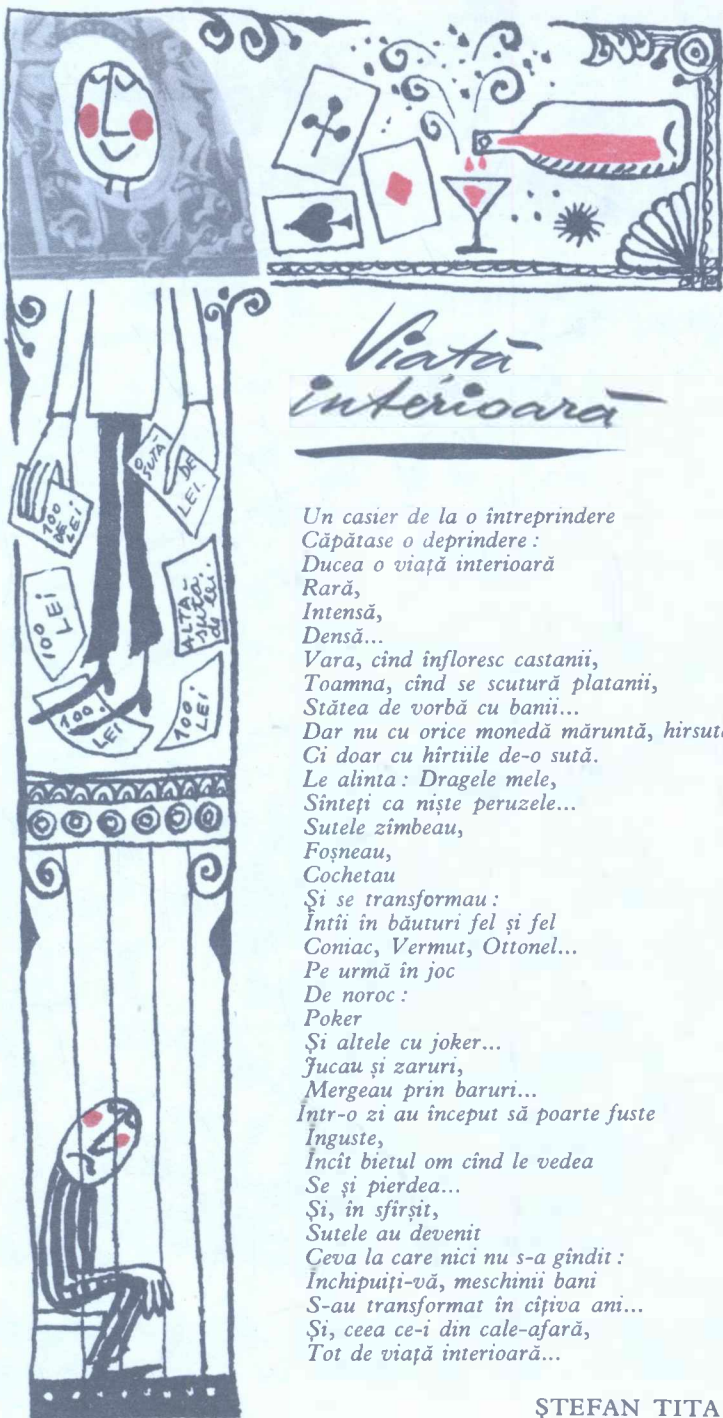 Viață
interioară
100
DE
LEI
O
SUTĂ
DE
LEI.
100
LEI
ALTĂ
sută
de lei.
100.
LEI
100.
LEI
Un casier de la o întreprindere
Căpătase o deprindere :
Ducea o viață interioară
Rară,
Intensă,
Densă...
Vara, cînd înfloresc castanii,
Toamna, cînd se scutură platanii,
Stătea de vorbă cu banii...
Dar nu cu orice monedă măruntă, hirsută
Ci doar cu hîrtiile de-o sută.
Le alinta : Dragele mele,
Sînteți ca niște peruzele...
Sutele zîmbeau,
Foșneau,
Cochetau
Și se transformau :
Întîi în băuturi fel și fel
Coniac, Vermut, Ottonel...
Pe urmă în joc
De noroc :
Poker
Și altele cu joker...
Jucau și zaruri,
Mergeau prin baruri...
Intr-o zi au început să poarte fuste
Inguste,
Incît bietul om cînd le vedea
Se și pierdea...
Și, în sfîrșit,
Sutele au devenit
Ceva la care nici nu s-a gîndit :
Inchipuiți-vă, meschinii bani
S-au transformat în cîțiva ani...
Și, ceea ce-i din cale-afară,
Tot de viață interioară...
ȘTEFAN TITA